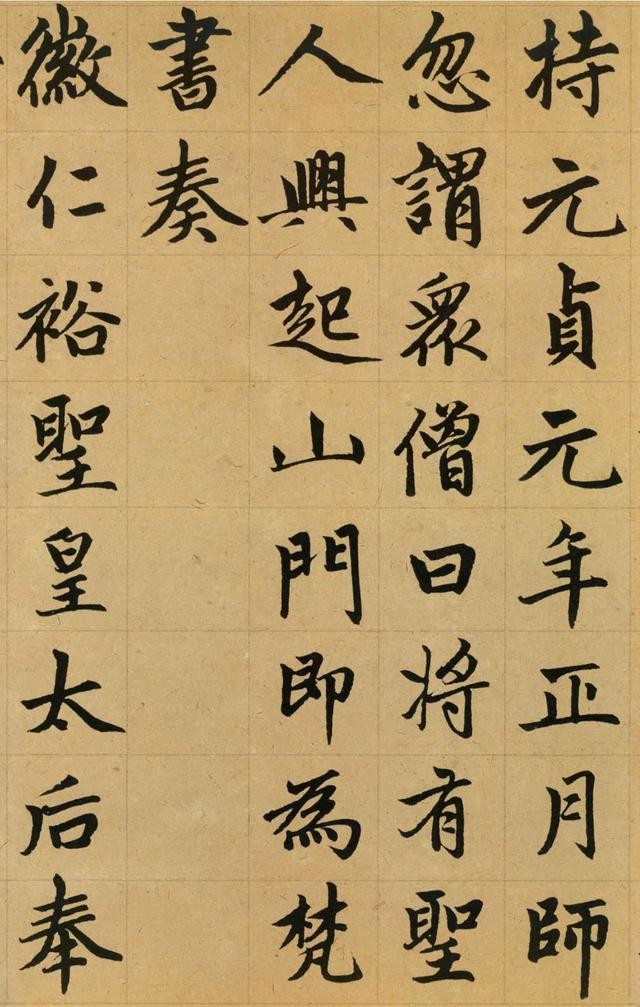 持元貞元年正月師
忽謂眾僧曰將有聖
人興起山門即為梵
書奏
徽仁裕聖皇太后奉